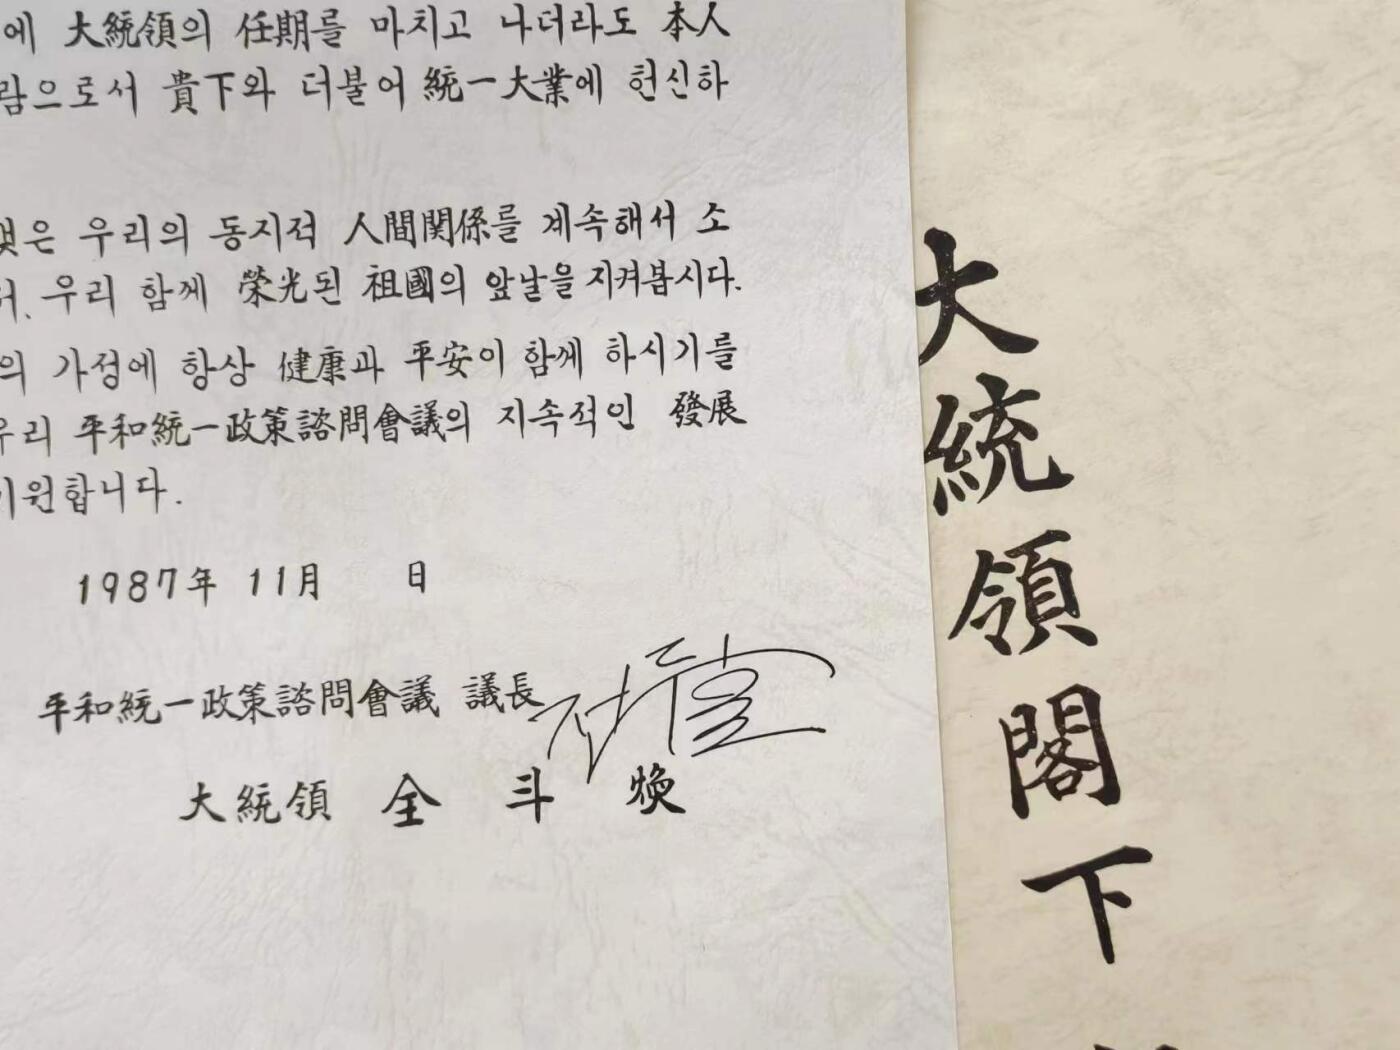 에 大統領의 任期를 마치고 나더라도 本人
람으로서 貴下와 더불어 統一大業에 헌신하
맺은 우리의 동지적 人間關係를 계속해서 소
우리 함께 榮光된 祖國의 앞날을 지켜봅시다.
의 가정에 항상 健康과 平安이 함께 하시기를
우리 平和統一政策諮問會議의 지속적인 發展
기원합니다.
1987年 11月 日
平和統一政策諮問會議 議長
大統領 全斗煥
大統領閣下